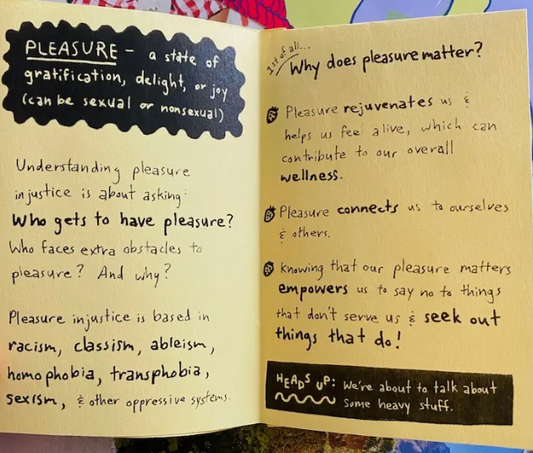 PLEASURE – a state of
gratification, delight, or joy
(can be sexual or nonsexual)
Understanding pleasure
injustice is about asking:
Who gets to have pleasure?
Who faces extra obstacles to
pleasure? And why?
Pleasure injustice is based in
racism, classism, ableism,
homophobia, transphobia,
sexism, & other oppressive systems.
1st of all...
Why does pleasure matter?
Pleasure rejuvenates us &
helps us feel alive, which can
contribute to our overall
wellness.
Pleasure connects us to ourselves
& others.
Knowing that our pleasure matters
empowers us to say no to things
that don't serve us & seek out
things that do!
HEADS UP: We're about to talk about
some heavy stuff.